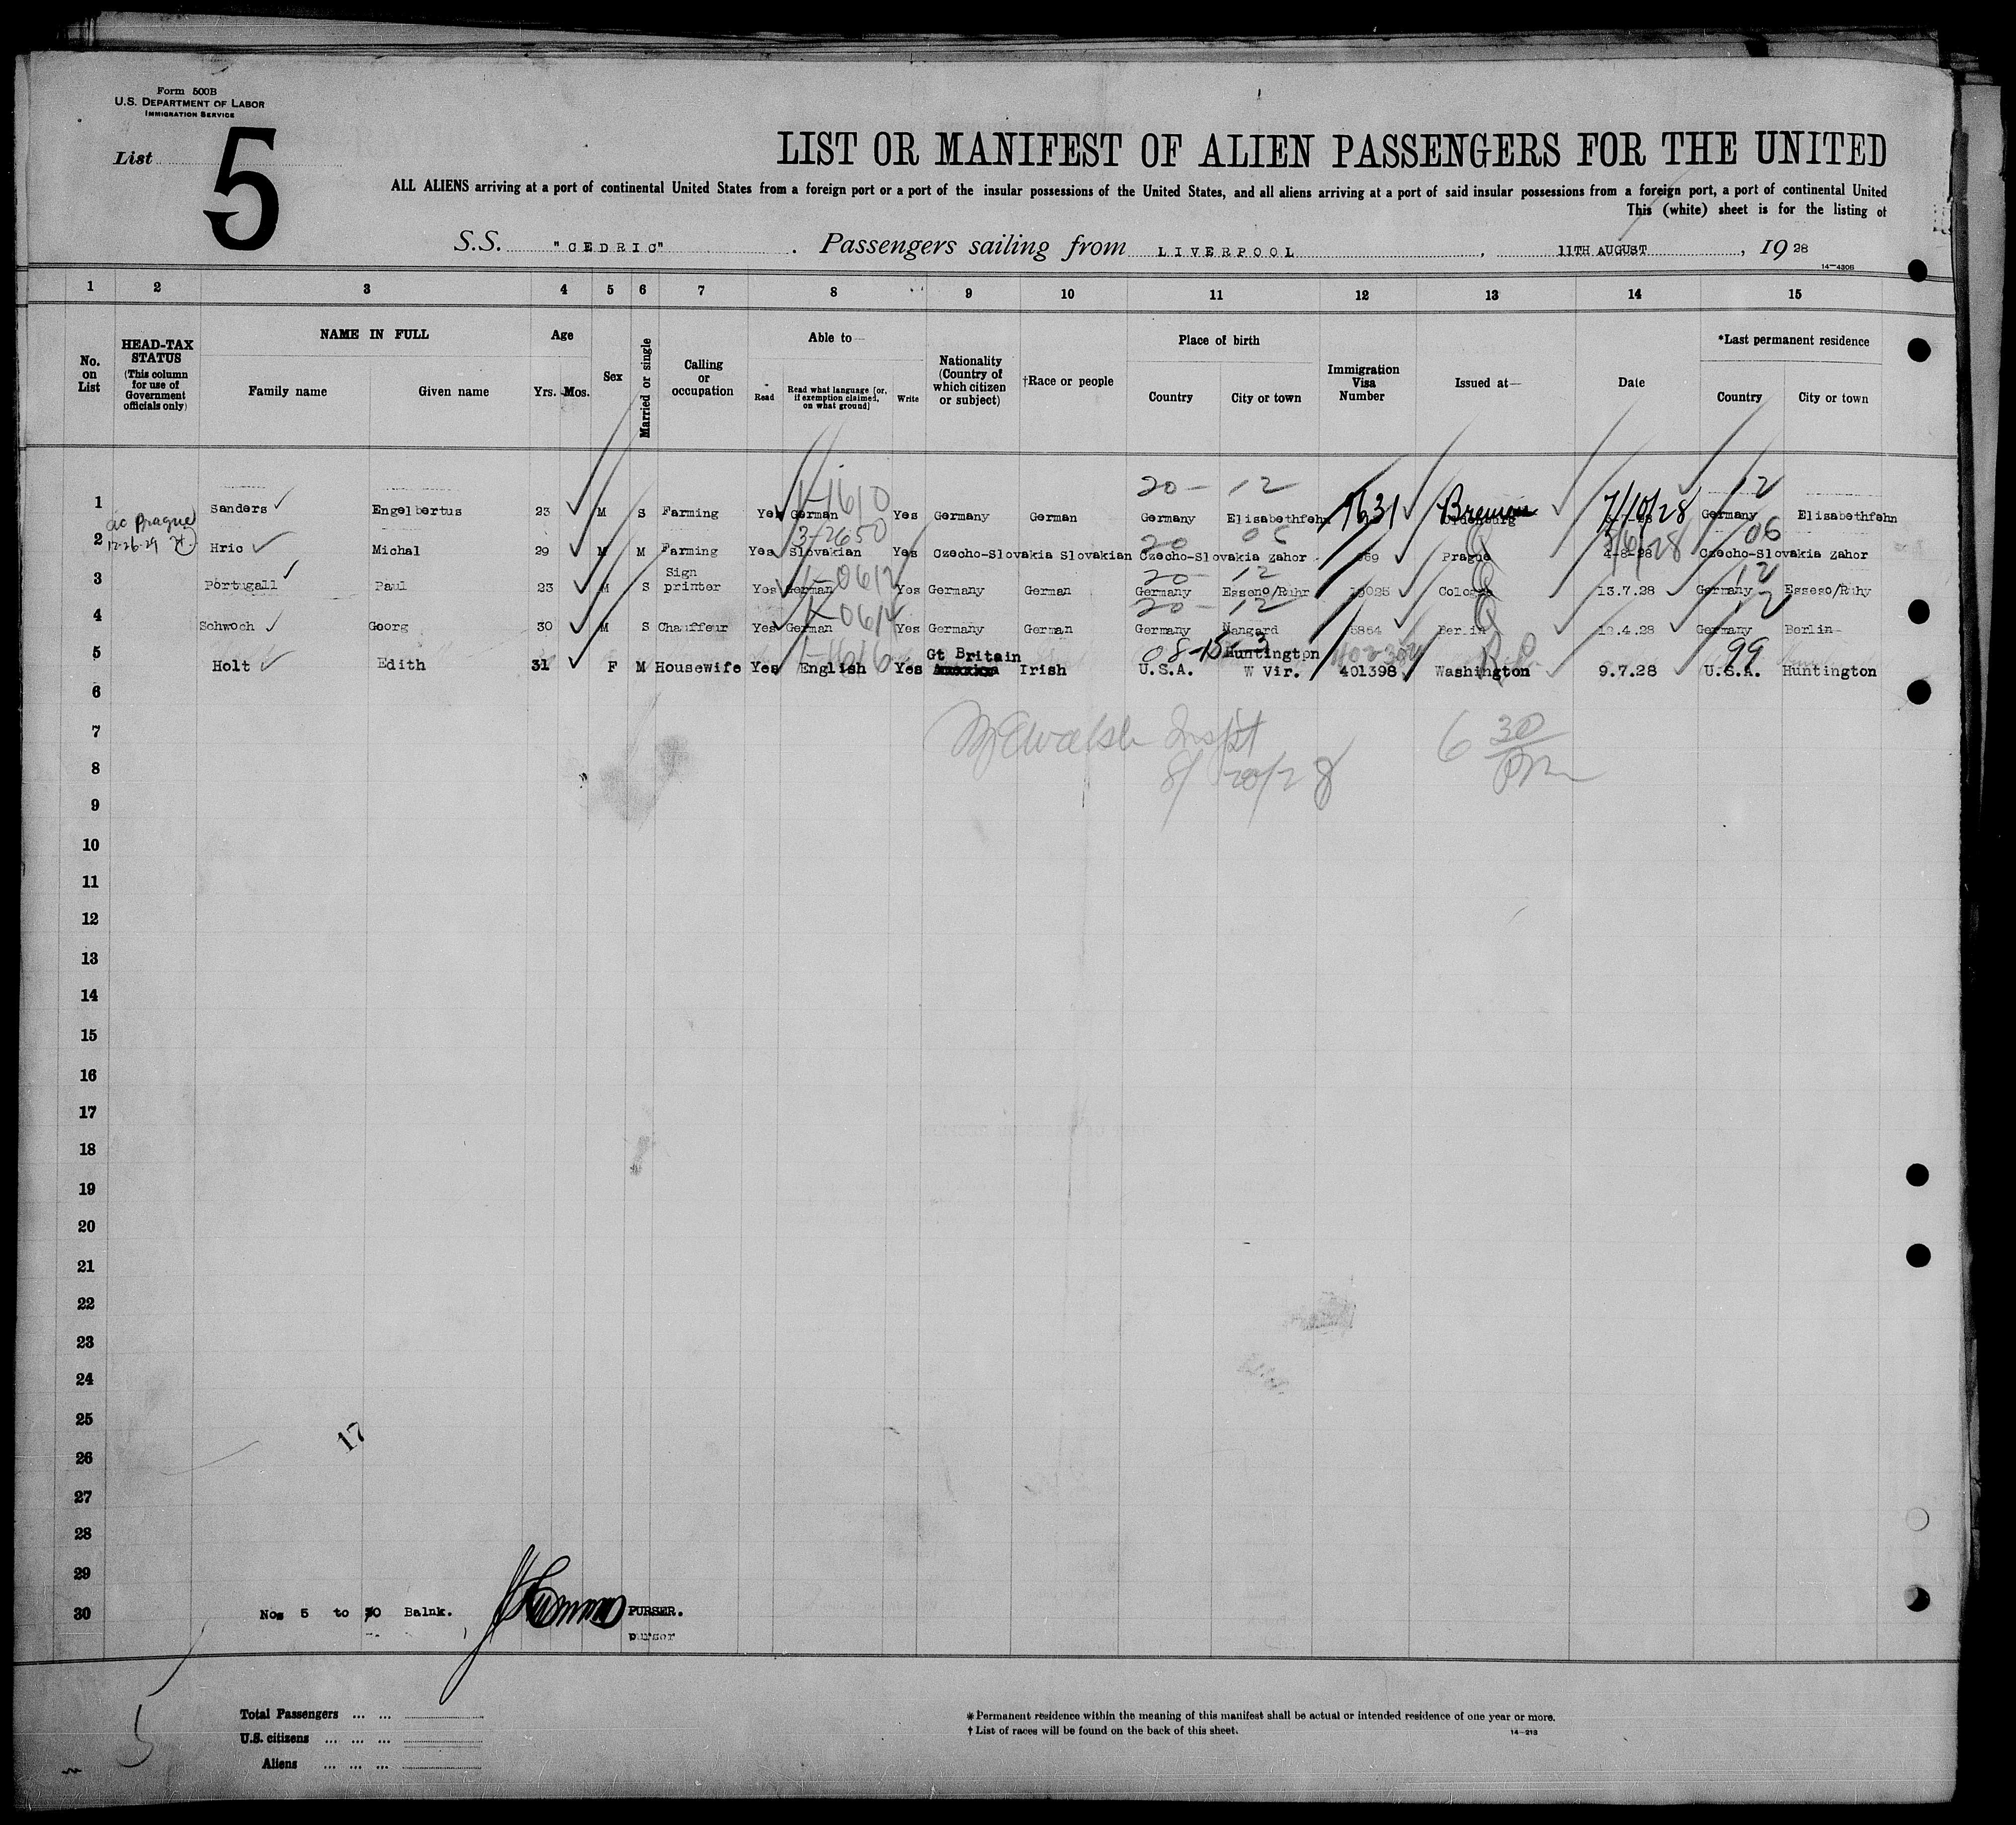 Form 500B
U.S. DEPARTMENT OF LABOR
IMMIGRATION SERVICE
List 5
LIST OR MANIFEST OF ALIEN PASSENGERS FOR THE UNITED
ALL ALIENS arriving at a port of continental United States from a foreign port or a port of the insular possessions of the United States, and all aliens arriving at a port of said insular possessions from a foreign port, a port of continental United
This (white) sheet is for the listing of
S.S. "CEDRIC". Passengers sailing from LIVERPOOL, 11TH AUGUST, 1928
14—4208
1 2 3 4 5 6 7 8 9 10 11 12 13 14 15
No. on List
HEAD-TAX STATUS
(This column for use of Government officials only)
NAME IN FULL
Family name Given name
Age
Yrs. Mos.
Sex
Married or single
Calling or occupation
Able to—
Read
Read what language [or, if exemption claimed, on what ground]
Write
Nationality (Country of which citizen or subject)
†Race or people
Place of birth
Country City or town
Immigration Visa Number
Issued at—
Date
*Last permanent residence
Country City or town
20— 12 12
1-1610
1 Sanders Engelbertus 23 M S Farming Yes German Yes Germany German Germany Elisabethfehn 1631 Bremen 7/10/28 Germany Elisabethfehn
ac Prague
12-26-29
3-2650 20 06 06
2 Hric Michal 29 M M Farming Yes Slovakian Yes Czecho-Slovakia Slovakian Czecho-Slovakia Zahor 869 Prague 4-8-28 Czecho-Slovakia Zahor
1-0612 20— 12 12
3 Portugall Paul 23 M S Sign printer Yes German Yes Germany German Germany Esseno/Ruhr Cologne 13.7.28 Germany Esseso/Ruhy
1-0614 20— 12 12
4 Schwoch Georg 30 M S Chauffeur Yes German Yes Germany German Germany Nangard Berlin Germany Berlin
1-1616 08-15-3 99
5 Holt Edith 31 F M Housewife Yes English Yes Gt Britain Irish U.S.A. Huntington W Vir. 401398 Washington 9.7.28 U.S.A. Huntington
6
7 Walsh Inspt 6 30
8 8/20/28 PM
9
10
11
12
13
14
15
16
17
18
19
20
21
22
23
24
25
17
26
27
28
29
30 Nos 5 to 30 Balnk. PURSER.
purser
5
Total Passengers ... ...
U.S. citizens ... ... ...
Aliens ... ... ...
* Permanent residence within the meaning of this manifest shall be actual or intended residence of one year or more.
† List of races will be found on the back of this sheet.
14—213